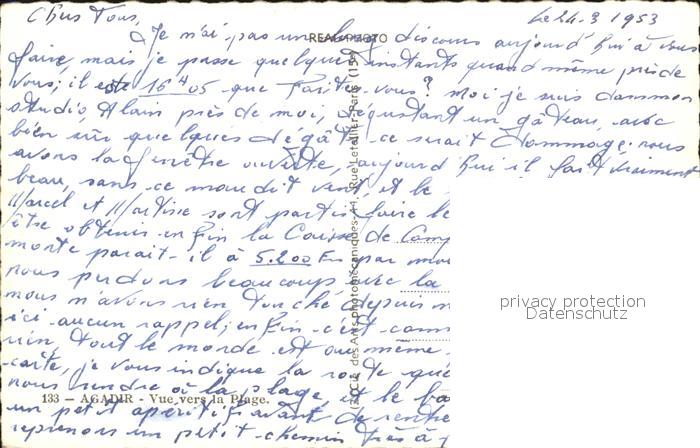 Chers Tous, Le 24.3 1953
Je n'ai pas un long discours aujourd'hui à vous
faire, mais je passe quelques instants quand même près de
vous; il est 16 H 05 que faites-vous? Moi je suis dans mon
studio, Alain près de moi, dégustant un gâteau, avec
bien sûr quelques dégâts, ce serait dommage; nous
avons la fenêtre ouverte, aujourd'hui il fait vraiment
beau, sans ce maudit vent, et le
Marcel et sont partis faire le
être obtenir enfin la Caisse de
morte parait-il à 5.200 Frs par
nous perdons beaucoup avec la
nous n'avons rien touché depuis
ici aucun rappel; enfin c'est
rien, tout le monde est au même
carte, je vous indique la route que
nous rendre à la plage, et le
un petit aperitif avant de rentrer
reprenons un petit chemin très à
REAL-PHOTO
Sté des Arts photomécaniques-44, Rue Letellier-Paris (15e)
133 — AGADIR - Vue vers la Plage.
privacy protection
Datenschutz